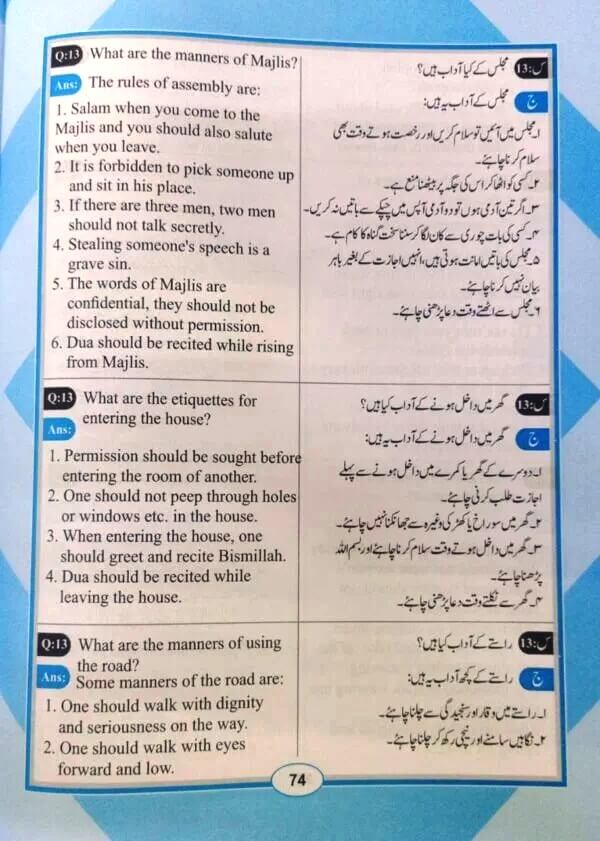 Q:13 What are the manners of Majlis?
Ans: The rules of assembly are:
1. Salam when you come to the
Majlis and you should also salute
when you leave.
2. It is forbidden to pick someone up
and sit in his place.
3. If there are three men, two men
should not talk secretly.
4. Stealing someone's speech is a
grave sin.
5. The words of Majlis are
confidential, they should not be
disclosed without permission.
6. Dua should be recited while rising
from Majlis.
س:13 مجلس کے کیا آداب ہیں؟
ج مجلس کے آداب یہ ہیں:
۱۔ مجلس میں آئیں تو سلام کریں اور رخصت ہوتے وقت بھی
سلام کرنا چاہئے۔
۲۔ کسی کو اٹھا کر اس کی جگہ پر بیٹھنا منع ہے۔
۳۔ اگر تین آدمی ہوں تو دو آدمی آپس میں چپکے سے باتیں نہ کریں۔
۴۔ کسی کی بات چوری سے کان لگا کر سننا سخت گناہ کا کام ہے۔
۵۔ مجلس کی باتیں امانت ہوتی ہیں، انہیں اجازت کے بغیر باہر
بیان نہیں کرنا چاہئے۔
۶۔ مجلس سے اٹھتے وقت دعا پڑھنی چاہئے۔
Q:13 What are the etiquettes for
entering the house?
Ans:
1. Permission should be sought before
entering the room of another.
2. One should not peep through holes
or windows etc. in the house.
3. When entering the house, one
should greet and recite Bismillah.
4. Dua should be recited while
leaving the house.
س:13 گھر میں داخل ہونے کے آداب کیا ہیں؟
ج گھر میں داخل ہونے کے آداب یہ ہیں:
۱۔ دوسرے کے گھر یا کمرے میں داخل ہونے سے پہلے
اجازت طلب کرنی چاہئے۔
۲۔ گھر میں سوراخ یا کھڑکی وغیرہ سے جھانکنا نہیں چاہئے۔
۳۔ گھر میں داخل ہوتے وقت سلام کرنا چاہئے اور بسم اللہ
پڑھنا چاہئے۔
۴۔ گھر سے نکلتے وقت دعا پڑھنی چاہئے۔
Q:13 What are the manners of using
the road?
Ans: Some manners of the road are:
1. One should walk with dignity
and seriousness on the way.
2. One should walk with eyes
forward and low.
س:13 راستے کے آداب کیا ہیں؟
ج راستے کے کچھ آداب یہ ہیں:
۱۔ راستے میں وقار اور سنجیدگی سے چلنا چاہئے۔
۲۔ نگاہیں سامنے اور نیچی رکھ کر چلنا چاہئے۔
74